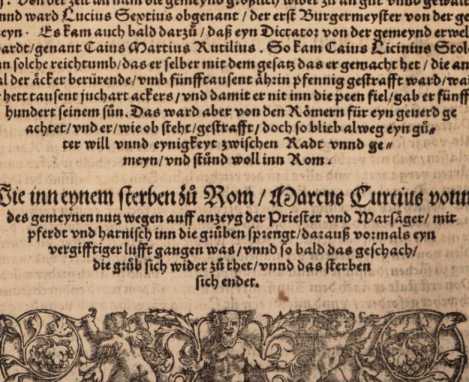 Von der zeit an nam die gemeynd größlich wider zů an gůt vnnd gewalt
nd ward Lucius Sextius obgenant / der erst Burgermeyster von der ge
eyn. Es kam auch bald darzů / daß eyn Dictator von der gemeynd erwel
ardt / genant Caius Martius Rutilius. So kam Caius Licinius Stol
nn solche reichtumb / das er selber mit dem gesatz das er gemacht het / die an
al der äcker berürende / vmb fünfftausent ährin pfennig gestrafft ward / wa
hett tausent juchart ackers / vnd damit er nit inn die peen fiel / gab er fünff
hundert seinem sůn. Das ward aber von den Römern für eyn geuerd ge
achtet / vnd er / wie ob steht / gestrafft / doch so blieb alweg eyn gů⸗
ter will vnnd eynigkeyt zwischen Radt vnnd ge⸗
meyn / vnd stůnd woll inn Rom.
Wie inn eynem sterben zů Rom / Marcus Curtius vonn
des gemeynen nutz wegen auff anzeyg der Priester vnd Warsäger / mit
pferdt vnd harnisch inn die grůben sprengt / darauß vormals eyn
vergifftiger lufft gangen was / vnnd so bald das geschach /
die grůb sich wider zů thet / vnnd das sterben
sich endet.